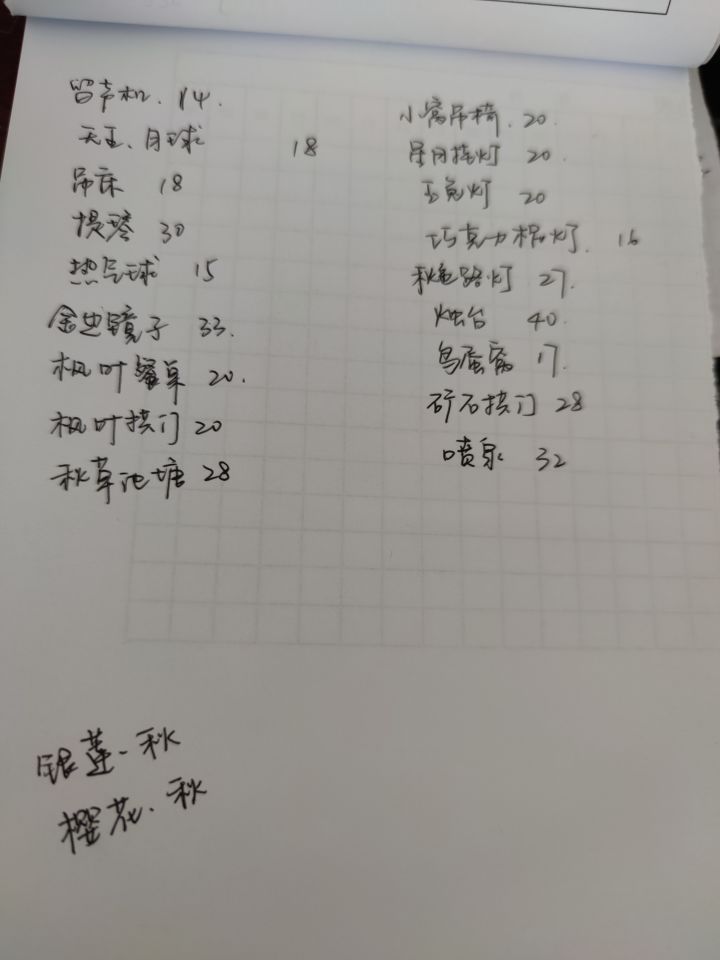 留声机. 14.
天王、月球 18
吊床 18
提琴 30
热气球 15
金边镜子 33.
枫叶餐桌 20.
枫叶拱门 20
秋草池塘 28
小窝吊椅. 20.
星月挂灯 20.
玉兔灯 20
巧克力棍灯. 16
秋色路灯 27.
烛台 40.
鸟蛋窝 17.
矿石拱门 28
喷泉 32
银莲-秋
樱花.秋